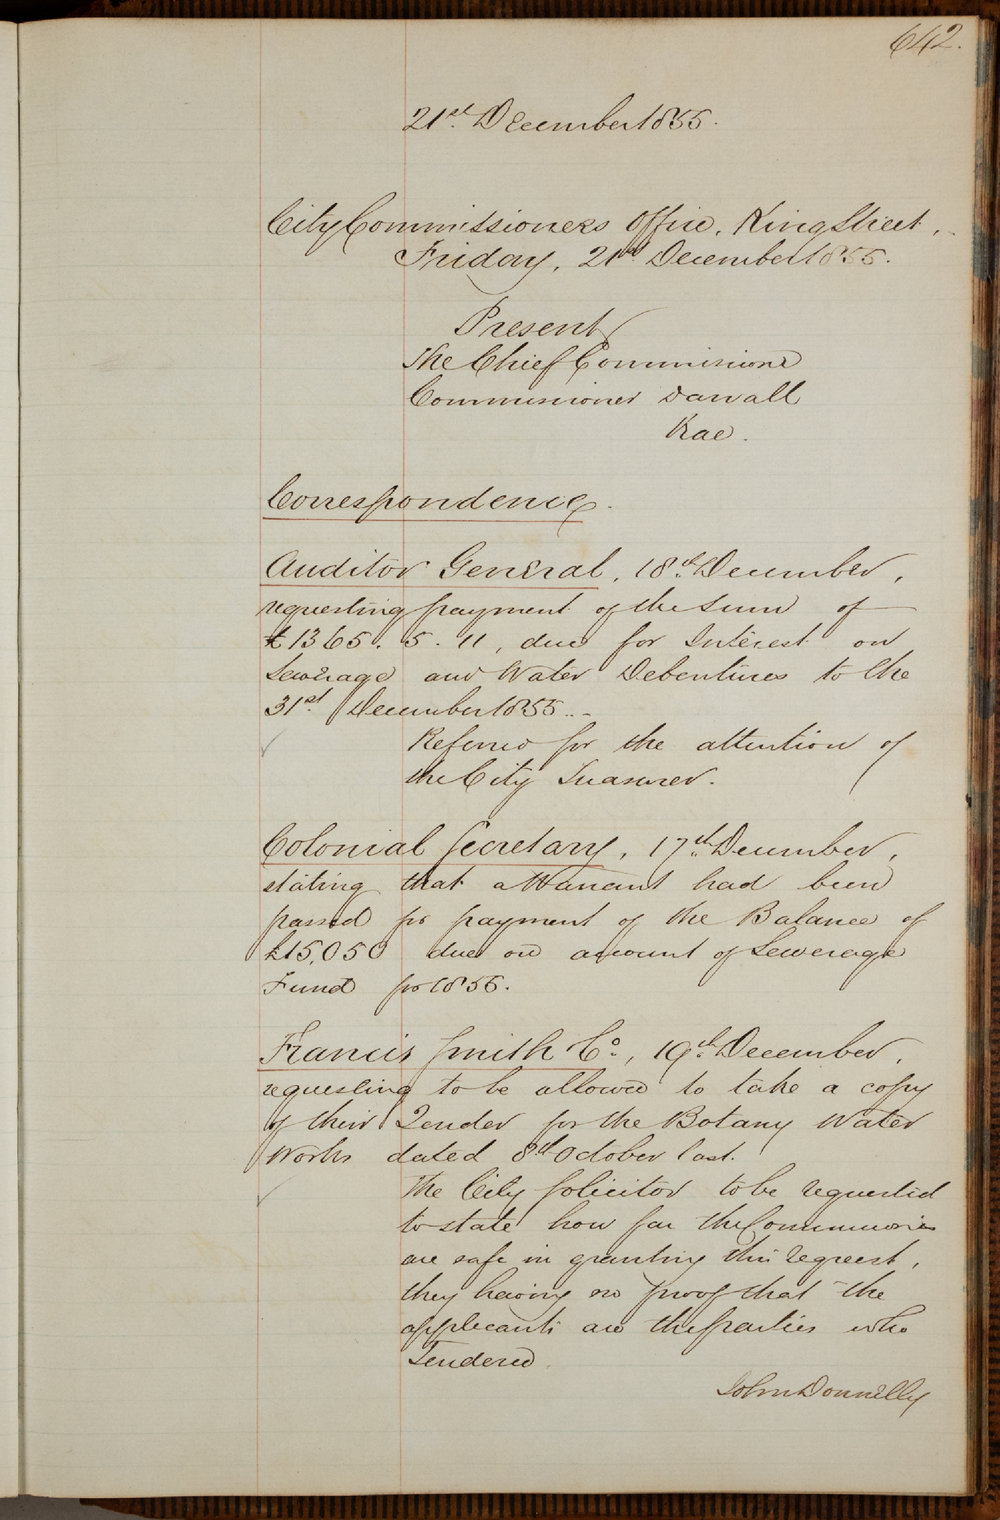 642.
21st December 1855.
City Commissioners Office, King Street,
Friday, 21st December 1855.
Present
The Chief Commissioner
Commissioner Darvall
Rae.
Correspondence.
Auditor General, 18th December,
requesting payment of the Sum of
£1365. 5. 11, due for Interest on
Sewerage and Water Debentures to the
31st December 1855..
Referred for the attention of
the City Treasurer.
Colonial Secretary, 17th December,
stating that a Warrant had been
passed for payment of the Balance of
£15,050 due on account of Sewerage
Fund for 1855.
Francis Smith Co., 19th December,
requesting to be allowed to take a copy
of their Tender for the Botany Water
Works dated 8th October last.
The City Solicitor to be requested
to state how far the Commissioners
are safe in granting this request,
they having no proof that the
applicants are the parties who
Tendered.
John Donnelly